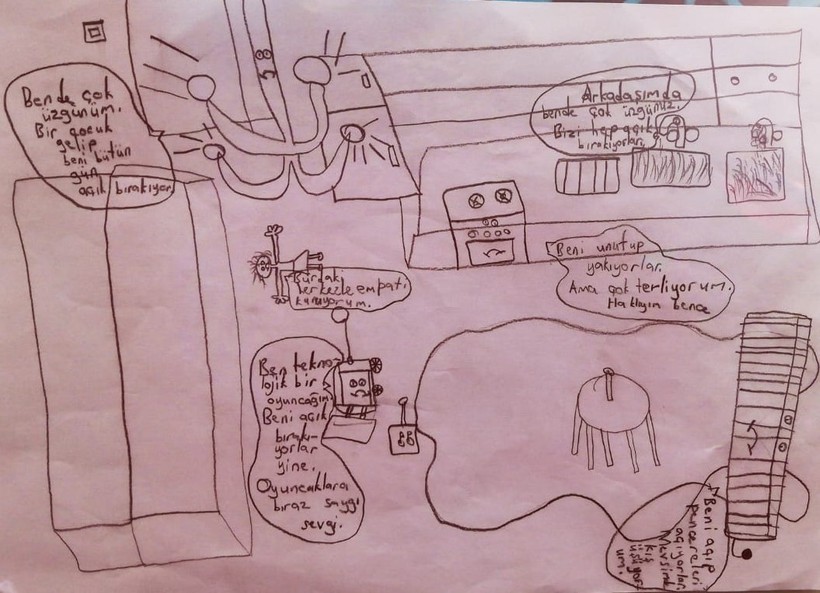 Bende çok
üzgünüm.
Bir çocuk
gelip
beni bütün
gün
açık bırakıyor
Arkadaşımda
bende çok üzgünüz.
Bizi hep açık
bırakıyorlar.
Beni unutup
yakıyorlar.
Ama çok terliyorum.
Haklıyım bence
Burdaki
herkezle empati
kuruyorum.
Ben tekno-
lojik bir
oyuncağım.
Beni açık
bırakı-
yorlar
yine.
Oyuncaklara
biraz saygı
sevgi.
Beni açıp
pencereleri
açıyorlar.
Mevsimde
kış
üşüyor
um.